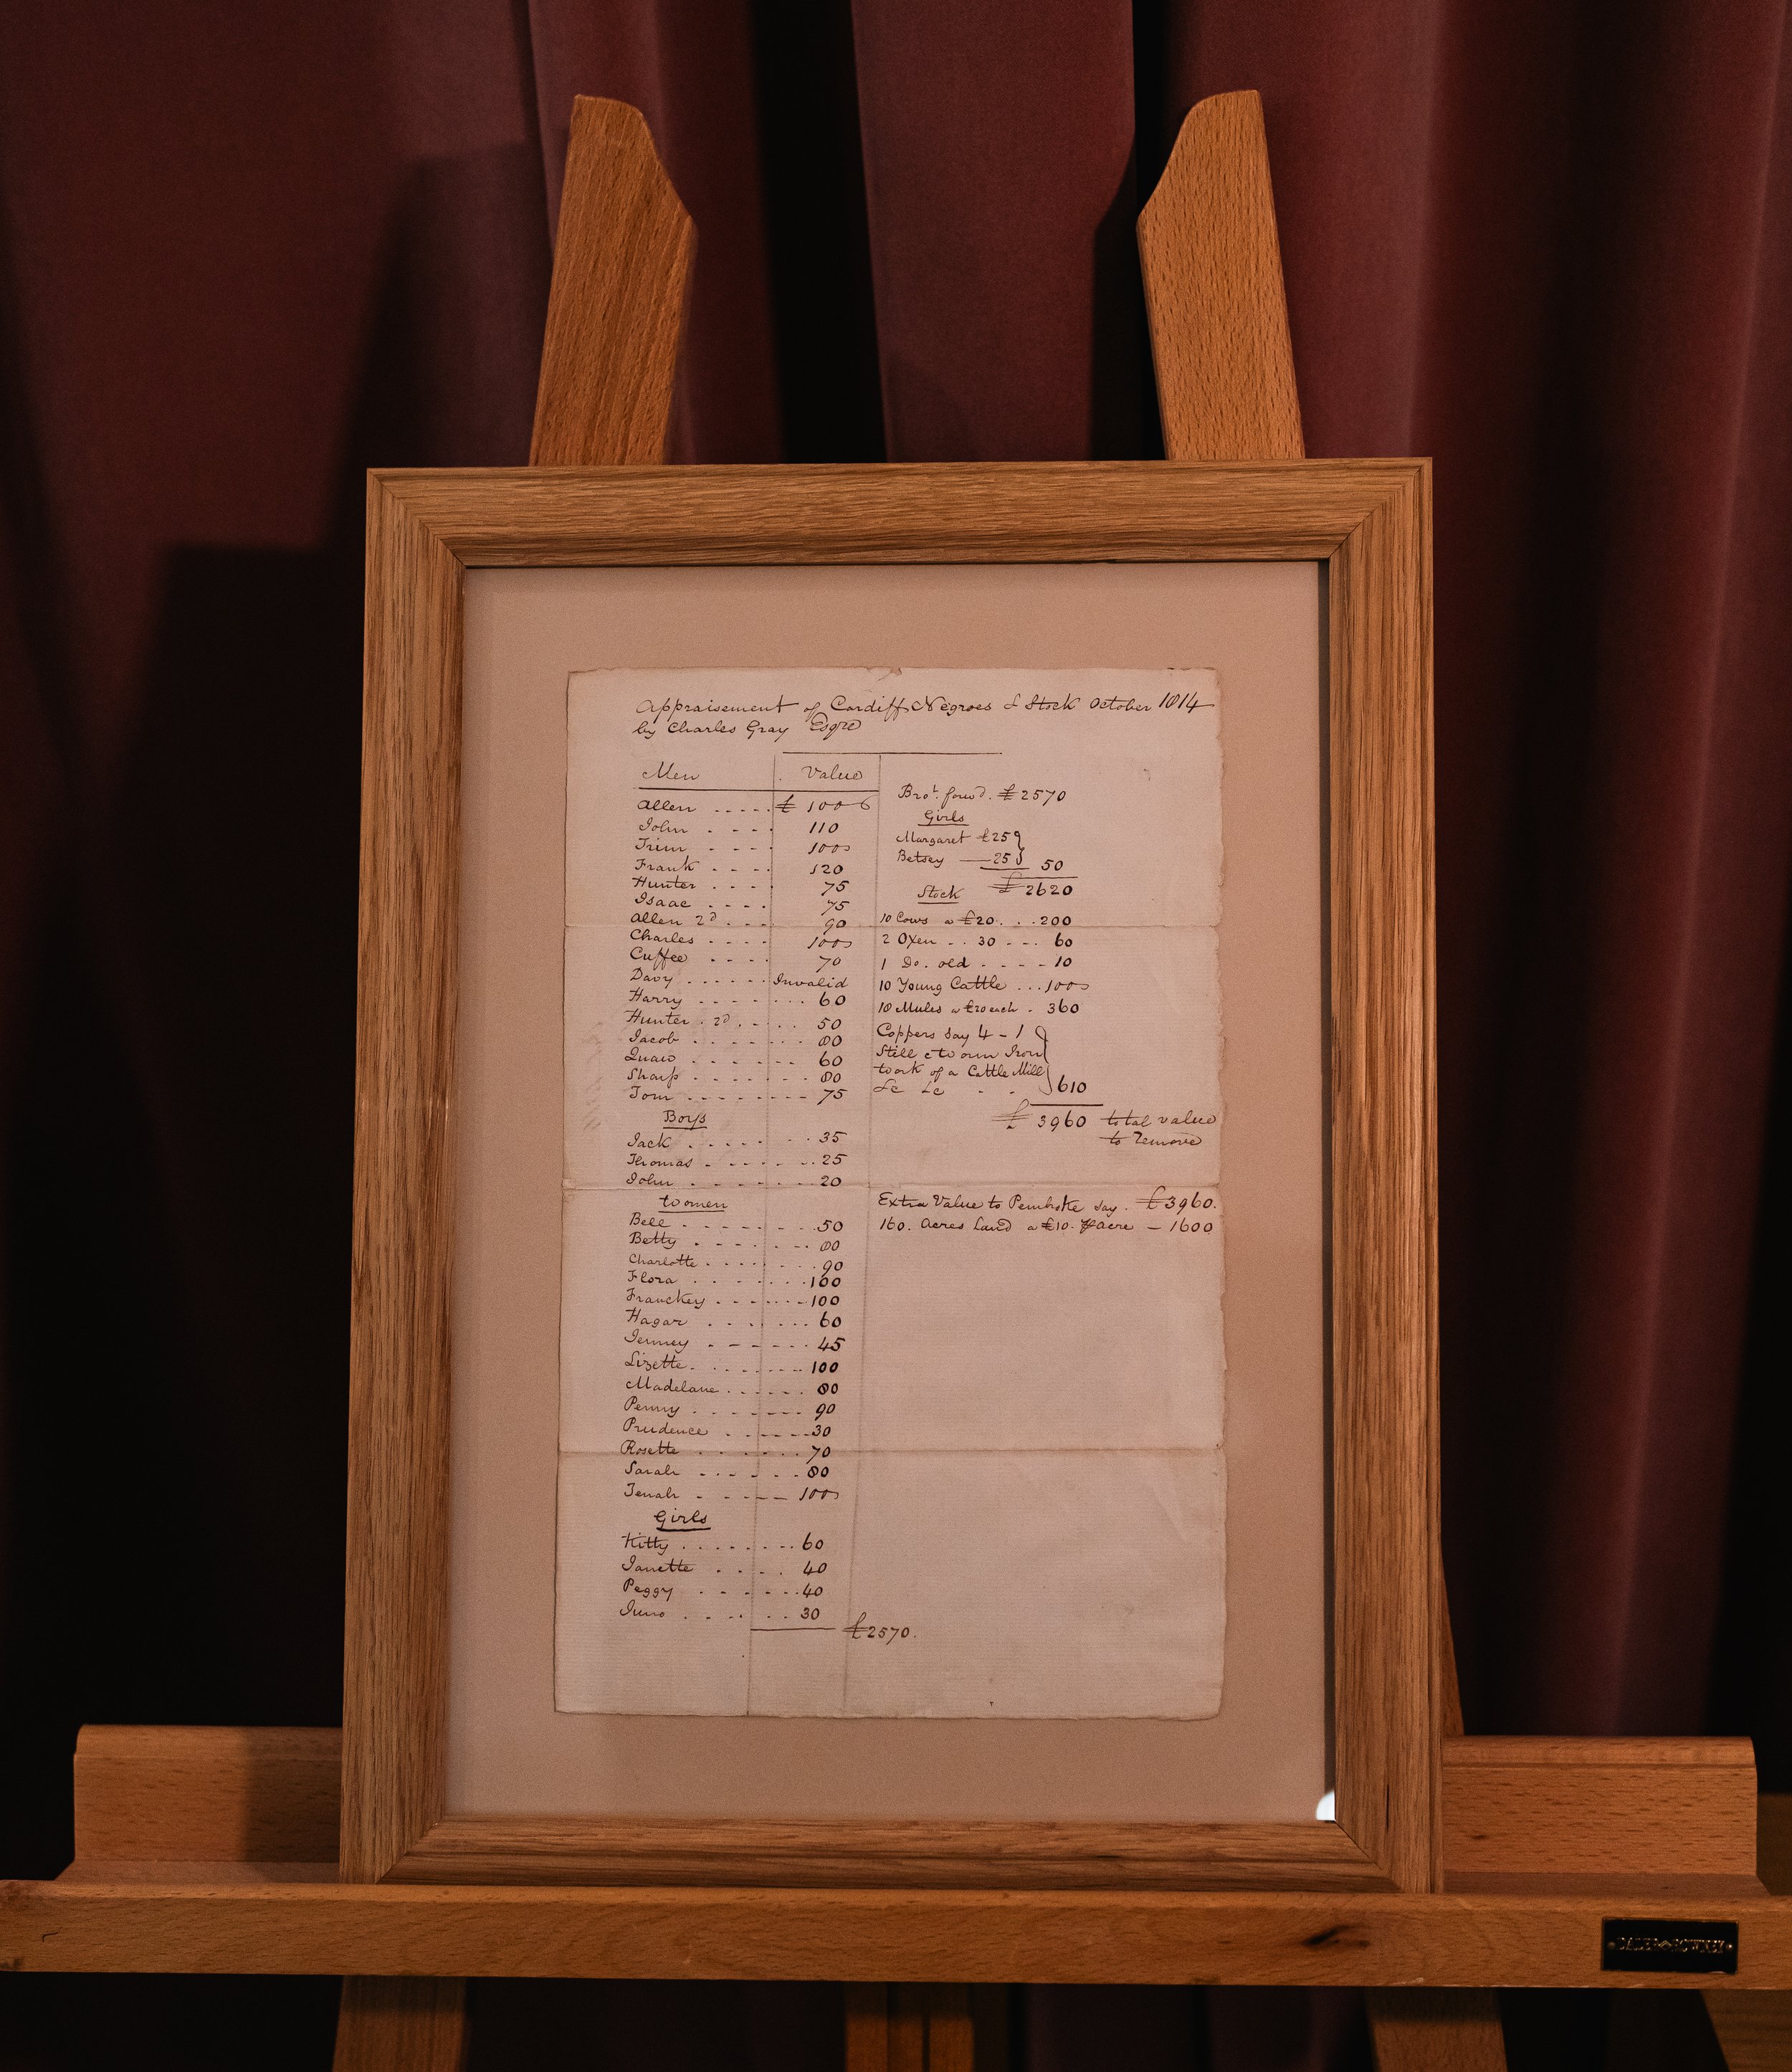 Appraisement of Cardiff Negroes & Stock October 1814
by Charles Gray Esqre
Men Value
Allen .... £ 100
John . - - - 110
Trim . - - - 100
Frank - - - . 120
Hunter - - - . 75
Isaac . - - . 75
Allen 2d . - - . 90
Charles - - - . 100
Cuffee - - - . 70
Davy ...... Invalid
Harry - - - - - . . . 60
Hunter . 2d . . - . . . 50
Jacob . - - - . . . 80
Quaw . - - - - - 60
Sharp . - - - . . . 80
Tom - - - - - - - - - 75
Boys
Jack . - - - . - . . 35
Thomas - . - - - . . . 25
John . . - - . - . . 20
Women
Bell - - - - - - . . 50
Betty . - - - - - . . . 80
Charlotte - - - - . . . . 90
Flora . - - . . . . 100
Franckey - - - - . - . - 100
Hagar . - - . . . . 60
Jenney . - - - - - - 45
Lizette . . - - - - - - 100
Madelane . . - - - - . 80
Penny . . - - - - - - 90
Prudence . - - - - - - 30
Rosette . . - - . . . 70
Sarah - - - . - - . . 80
Tenah - . - - - - 100
Girls
Kitty . . . . - - - . . 60
Janette . . . - . 40
Peggy - - . - - . . . 40
Juno . . - - . . . 30
£2570.
Brot. forwd. £2570
Girls
Margaret £25
Betsey — 25 50
£2620
Stock
10 Cows a £20. . . 200
2 Oxen - . 30 - - . 60
1 Do. old - - - - 10
10 Young Cattle ... 100
18 Mules a £20 each . 360
Coppers say 4 - 1
Still &
work of a Cattle Mill
&c &c - . 610
£ 3960 total value
to remove
Extra Value to Pembroke say . £3960.
160. Acres Land a £10. acre - 1600
DALER ROWNEY